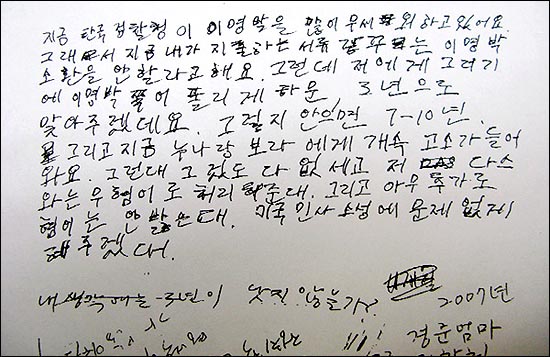 지금 한국 검찰청이 이명박을 많이 무서워하고 있어요
그래서 지금 내가 제출하는 서류 가지고는 이명박
소환을 안 할라고 해요. 그런데 저에게 그러기
에 이명박 쪽이 풀리게 하문 3년으로
맞아주겠데요. 그렇지 안으면 7-10년.
그리고 지금 누나랑 보라에게 개속 고소가 들어
와요. 그런대 그것도 다 없세고 저 다스
와는 무혐이로 처리 해준대. 그리고 아무 추가로
혐이는 안 받는대. 미국 민사 소성에 문제 없게
해 주겠대.
내 생각에는 3년이 낫지 않을가?
2007년
경준엄마